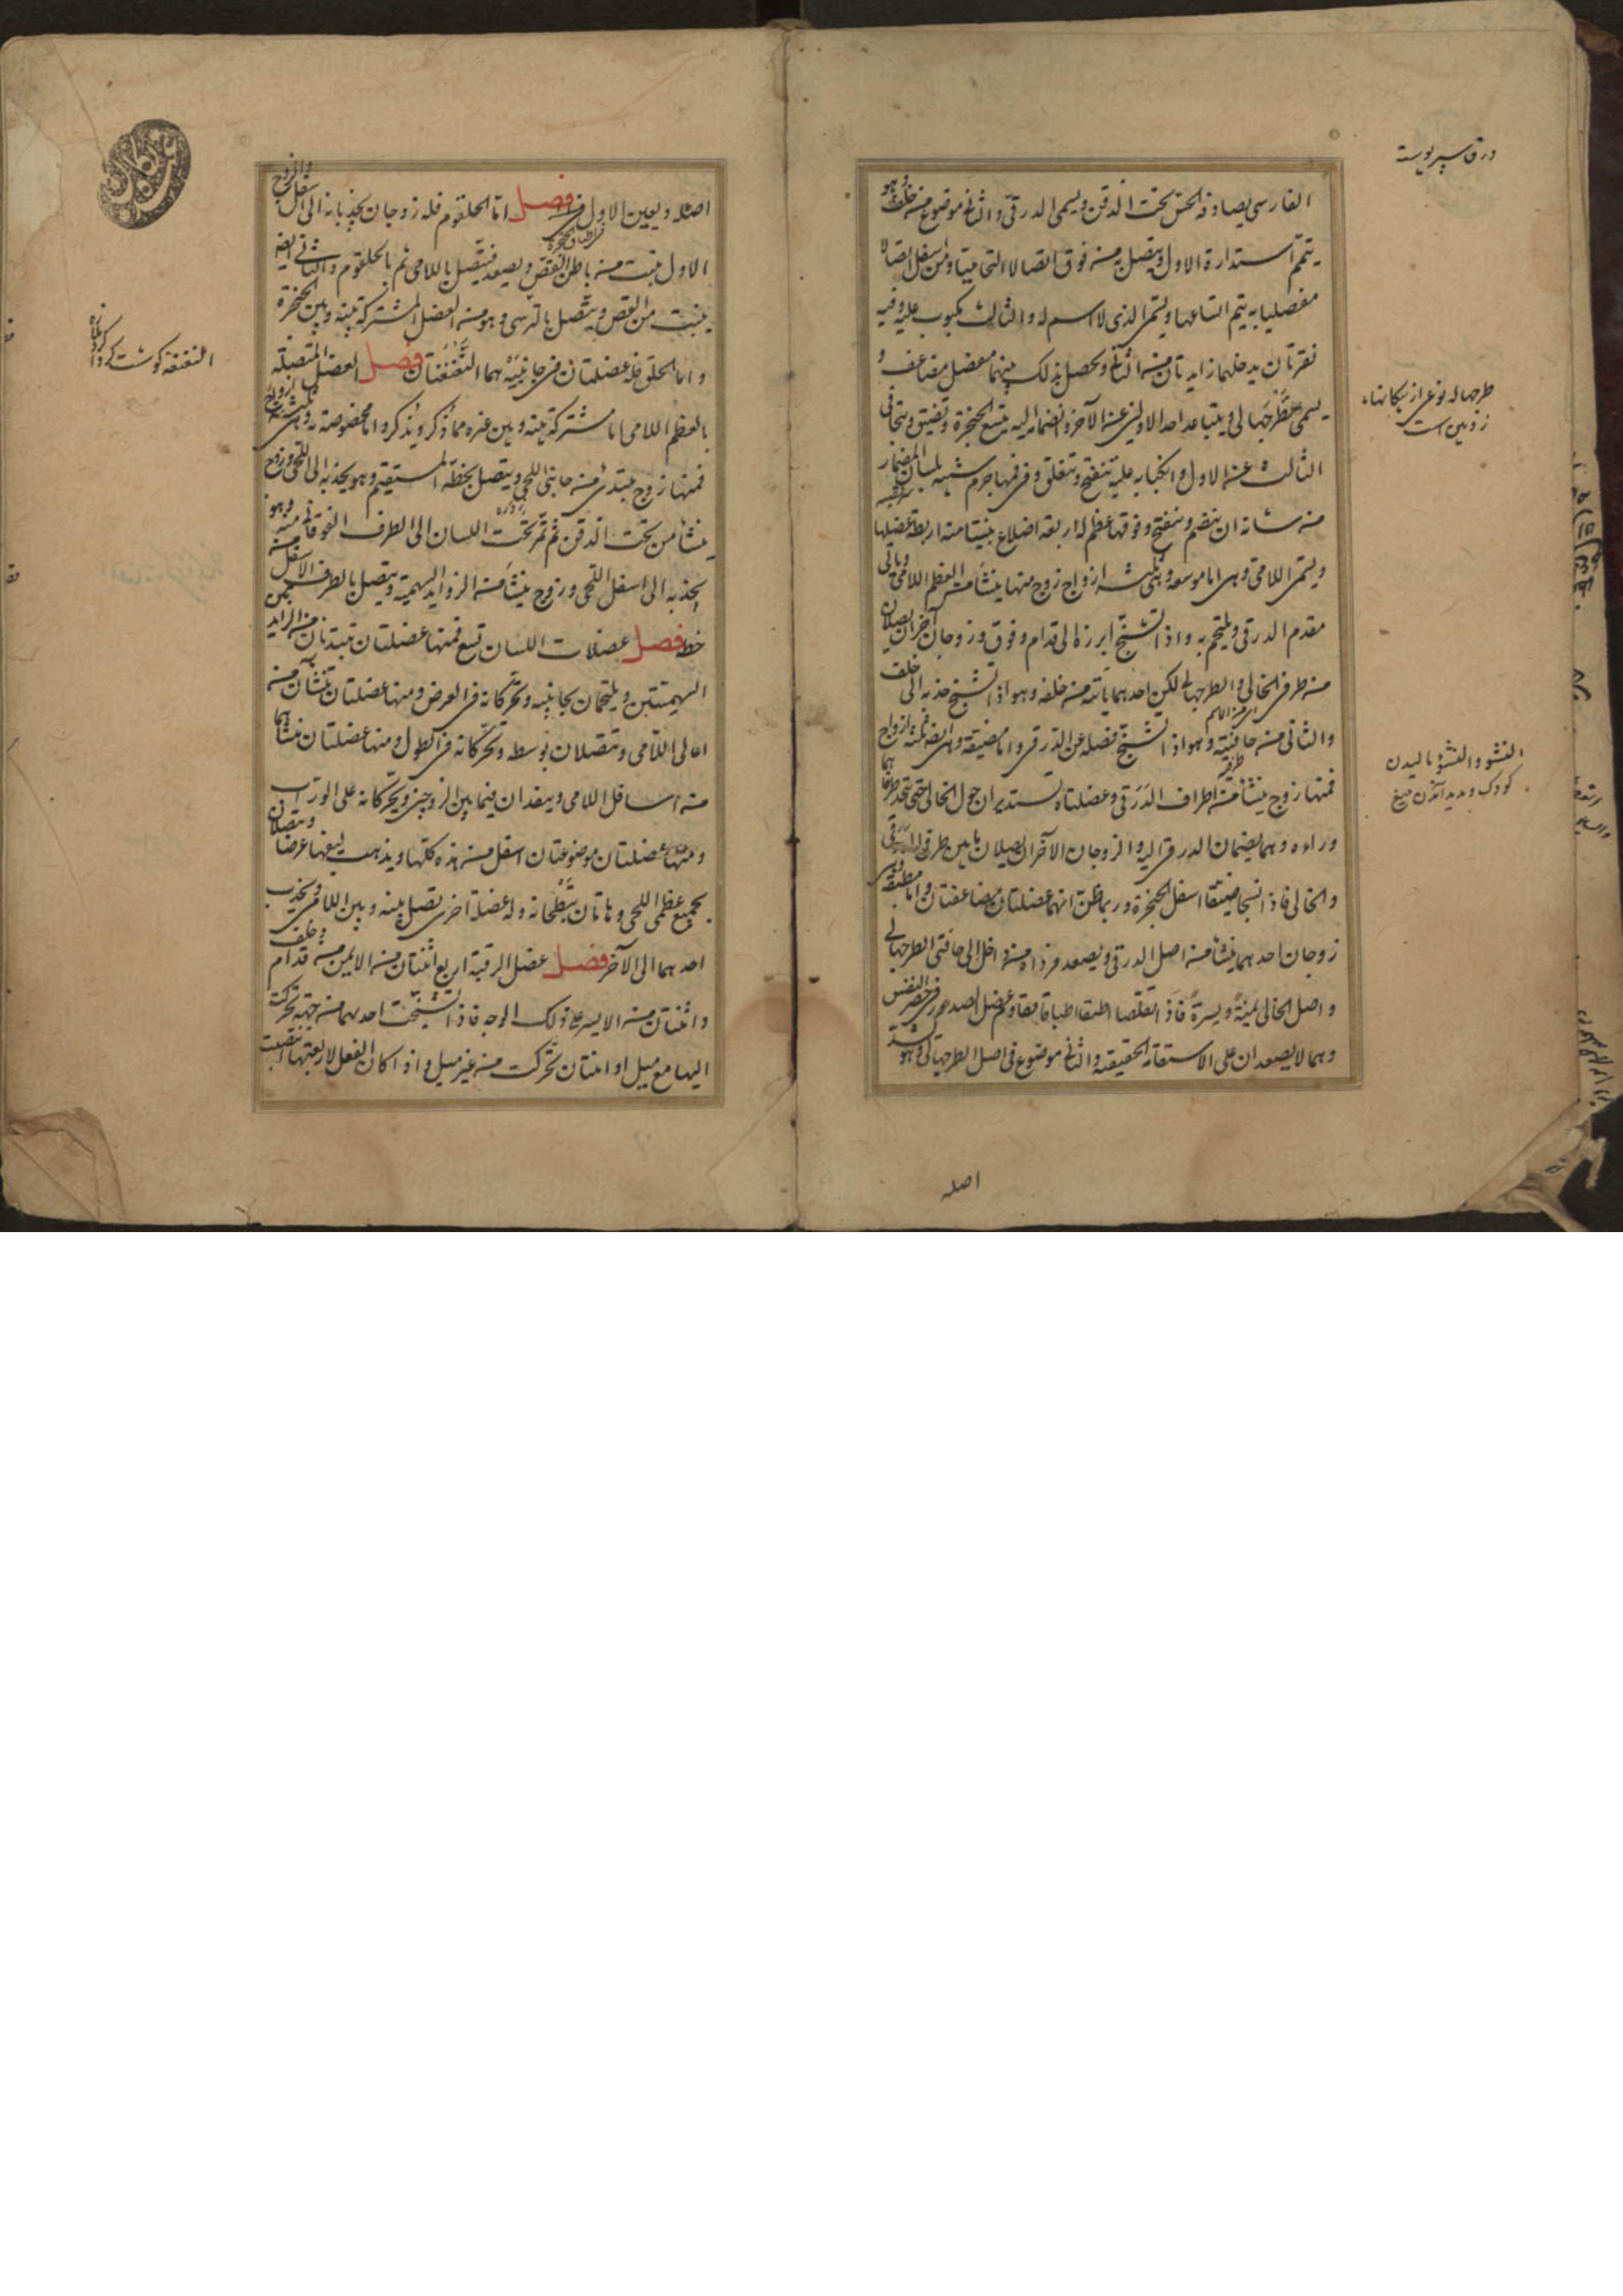 الفارسي يصادفه الحس تحت الذقن ويسمى الدرقي والثاني موضوع من خلف وهو
يتمم استدارة الاول ويتصل به من فوق اتصالا التحاميا ومن اسفل اتصالا
مفصليا به يتم اتساعها ويسمى الذي لا اسم له والثالث مكبوب عليه وفيه
نقرتان يدخلهما زايدتان من الثاني ويحصل بذلك بينهما مفصل مضاعف و
يسمى طرجهالي ويتباعد احد الاولين عن الآخر وانضمامه اليه يتسع الحنجرة وتضيق وبتجافي
الثالث عن الاول وانكبابه عليه تنفتح وتنغلق وفي فمها جرم شبيه بلسان المزمار
من شانه ان ينضم وينفتح وفوقها عظم له اربعة اضلاع يثبتا منه اربطة عضلها
ويسمى اللامي وهي اما موسعة وهي ثلثة ازواج زوج منها ينشأ من العظم اللامي وياتي
مقدم الدرقي ويلتحم به واذا تشنج ابرزه الى قدام وفوق وزوجان آخران يصلان
من طرفي الخالي والطرجهالي لكن احدهما ياتيه من خلفه وهو اذا تشنج جذبه الى خلف
والثاني من جانبيه وهو اذا تشنج فصله عن الدرقي واما مضيقة وهي ايضا ثلثة ازواج
فمنها زوج ينشأ من اطراف الدرقي وعضلتاه تستديران حول الخالي حتى تتحد طرفاهما
وراءه وهما يضمان الدرقي اليه والزوجان الآخران يصلان ما بين طرفي الدرقي
والخالي فاذا تشنجا ضيقتا اسفل الحنجرة وربما ظن انهما عضلتان مضاعفتان واما مطبقة وهي
زوجان احدهما ينشأ من اصل الدرقي ويصعد فرداه من داخل الى حافتي الطرجهالي
واصل الخالي يمنة ويسرة فاذا تقلصا اطبقا اطباقا يقاوم عضل الصدر في حصر النفس
وهما لا يصعدان على الاستقامة الحقيقة والثاني موضوع في اصل الطرجهالي وهو يشد
اصله
درقة سپر پوسته
طرجهاله نوعي از پنكانها
زوبين است
النشو والنشؤ باليدن
كودك وپديد آمدن ميغ
اصله ويعين الاول في اطباق الحنجرة فصل اما الحلقوم فله زوجان يجذبانه الى اسفل والزوج
الاول ينبت من باطن القص ويصعد فيتصل باللامي ثم بالحلقوم والثاني ايضا
ينبت من القص ويتصل بالترسي وهو من العضل المشتركة بينه وبين الحنجرة
واما الحلق فله عضلتان في جانبيه هما النغنغتان فصل العضل المتصلة
بالعظم اللامي اما مشتركة بينه وبين غيره مما ذكر ويذكر واما مخصوصة به وهي ثلثة ازواج
فمنها زوج يبتدئ من جانبي اللحي ويتصل بخطه المستقيم وهو يجذبه الى اللحي وزوج
ينشأ من تحت الذقن ثم تمر تحت اللسان الى الطرف الفوقاني منه وهو
يجذبه الى اسفل اللحي وزوج ينشأ من الزوايد السهمية ويتصل بالطرف الاسفل من
خطه فصل عضلات اللسان تسع فمنها عضلتان تبتديان من الزايد
السهميتين ويلتحمان بجانبيه وتحركانه في العرض ومنها عضلتان تنشآن من
اعالي اللامي وتتصلان بوسطه وتحركانه في الطول ومنها عضلتان منشأهما
من اسافل اللامي وينفذان فيما بين الزوجين ويحركانه على الوراب
ومنها عضلتان موضوعتان اسفل من هذه كلها ويذهب ليفها عرضا ويتصلان
بجميع عظمي اللحي وهاتان تبطحانه وله عضلة اخرى تصل بينه وبين اللامي ويجذب
احدهما الى الآخر فصل عضل الرقبة اربع اثنتان من الايمن من قدام وخلف
واثنتان من الايسر على ذلك الوجه فاذا تشنجت احدهما من جهة تحركت
اليها مع ميل او اثنتان تحركت من غير ميل واذا كان الفعل لاربعتها انتصبت
النغنغه گوشت گرداگرد ملازه